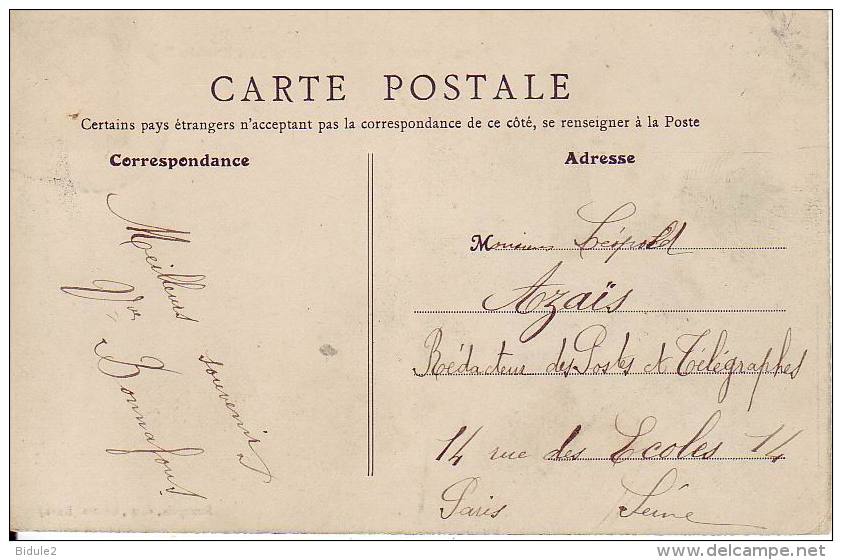 CARTE POSTALE
Certains pays étrangers n'acceptant pas la correspondance de ce côté, se renseigner à la Poste
Correspondance
Meilleurs souvenirs
Vve Bonnafont
Adresse
Monsieur Léopold
Azaïs
Rédacteur des Postes et Télégraphes
14 rue des Ecoles 14
Paris Seine
Bidule2
www.delcampe.net